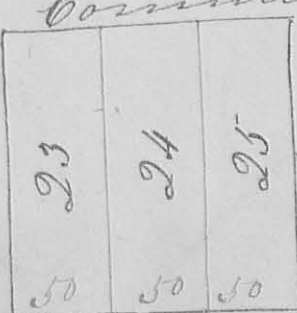 23 24 25
50 50 50